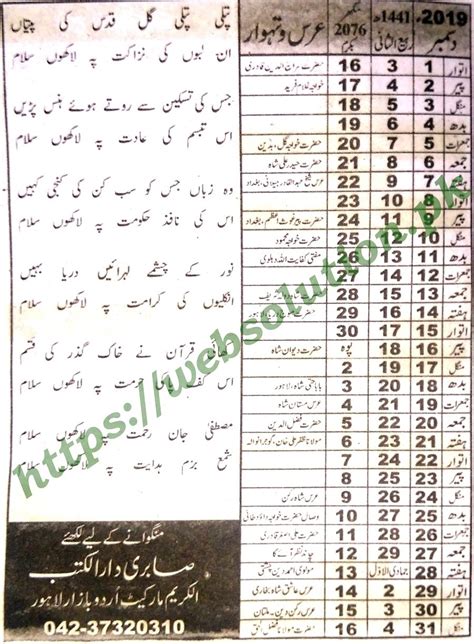 پتلی پتلی گل قدس کی پتیاں
ان لبوں کی نزاکت پہ لاکھوں سلام
جس کی تسکین سے روتے ہوئے ہنس پڑیں
اس تبسم کی عادت پہ لاکھوں سلام
وہ زباں جس کو سب کن کی کنجی کہیں
اس کی نافذ حکومت پہ لاکھوں سلام
نور کے چشمے لہرائیں دریا بہیں
انگلیوں کی کرامت پہ لاکھوں سلام
کھائی قرآن نے خاک گذر کی قسم
اس کف پا کی حرمت پہ لاکھوں سلام
مصطفیٰ جان رحمت پہ لاکھوں سلام
شمع بزم ہدایت پہ لاکھوں سلام
منگوانے کے لیے لکھئے
صابری دارالکتب
الکریم مارکیٹ اُردو بازار لاہور
042-37320310
2019ء دسمبر 1441ھ ربیع الثانی 2076 عرس و تہوار
اتوار 1 3 16 حضرت سراج الدین قادری
پیر 2 4 17 خواجہ غلام فرید
منگل 3 5 18
بدھ 4 6 19
جمعرات 5 7 20 حضرت خواجہ گل،
جمعہ 6 8 21 حضرت حیدر علی شاہ
ہفتہ 7 9 22 عرس شیخ عبدالقادر جیلانی، بغداد
اتوار 8 10 23
پیر 9 11 24 حضرت پیر غوث اعظم، بغداد
منگل 10 12 25 حضرت خواجہ محمود
بدھ 11 13 26 مفتی کفایت اللہ دہلوی
جمعرات 12 14 27
جمعہ 13 15 28 حضرت شاہ
ہفتہ 14 16 29 دریا، لاہور
اتوار 15 17 30
پیر 16 18 پوہ حضرت دیوان شاہ
منگل 17 19 2
بدھ 18 20 3 بابا شاہ، لاہور
جمعرات 19 21 4 عرس مستان شاہ
جمعہ 20 22 5 حضرت فضل الدین
ہفتہ 21 23 6 مولانا ظفر علی خان، گوجرانوالہ
اتوار 22 24 7
پیر 23 25 8
منگل 24 26 9 عرس شاہ رکن
بدھ 25 27 10 وصال حضرت خواجہ
جمعرات 26 28 11 حضرت علی اصغر قادری
جمعہ 27 29 12 چاند نظر آئے گا
ہفتہ 28 جمادی الاوّل 13 مولوی احمد دین چشتی
اتوار 29 2 14 عرس عاشق شاہ
پیر 30 3 15 عرس رکن دین، ملتان
منگل 31 4 16 حضرت مولانا فضل الحق
https://websolution.pk